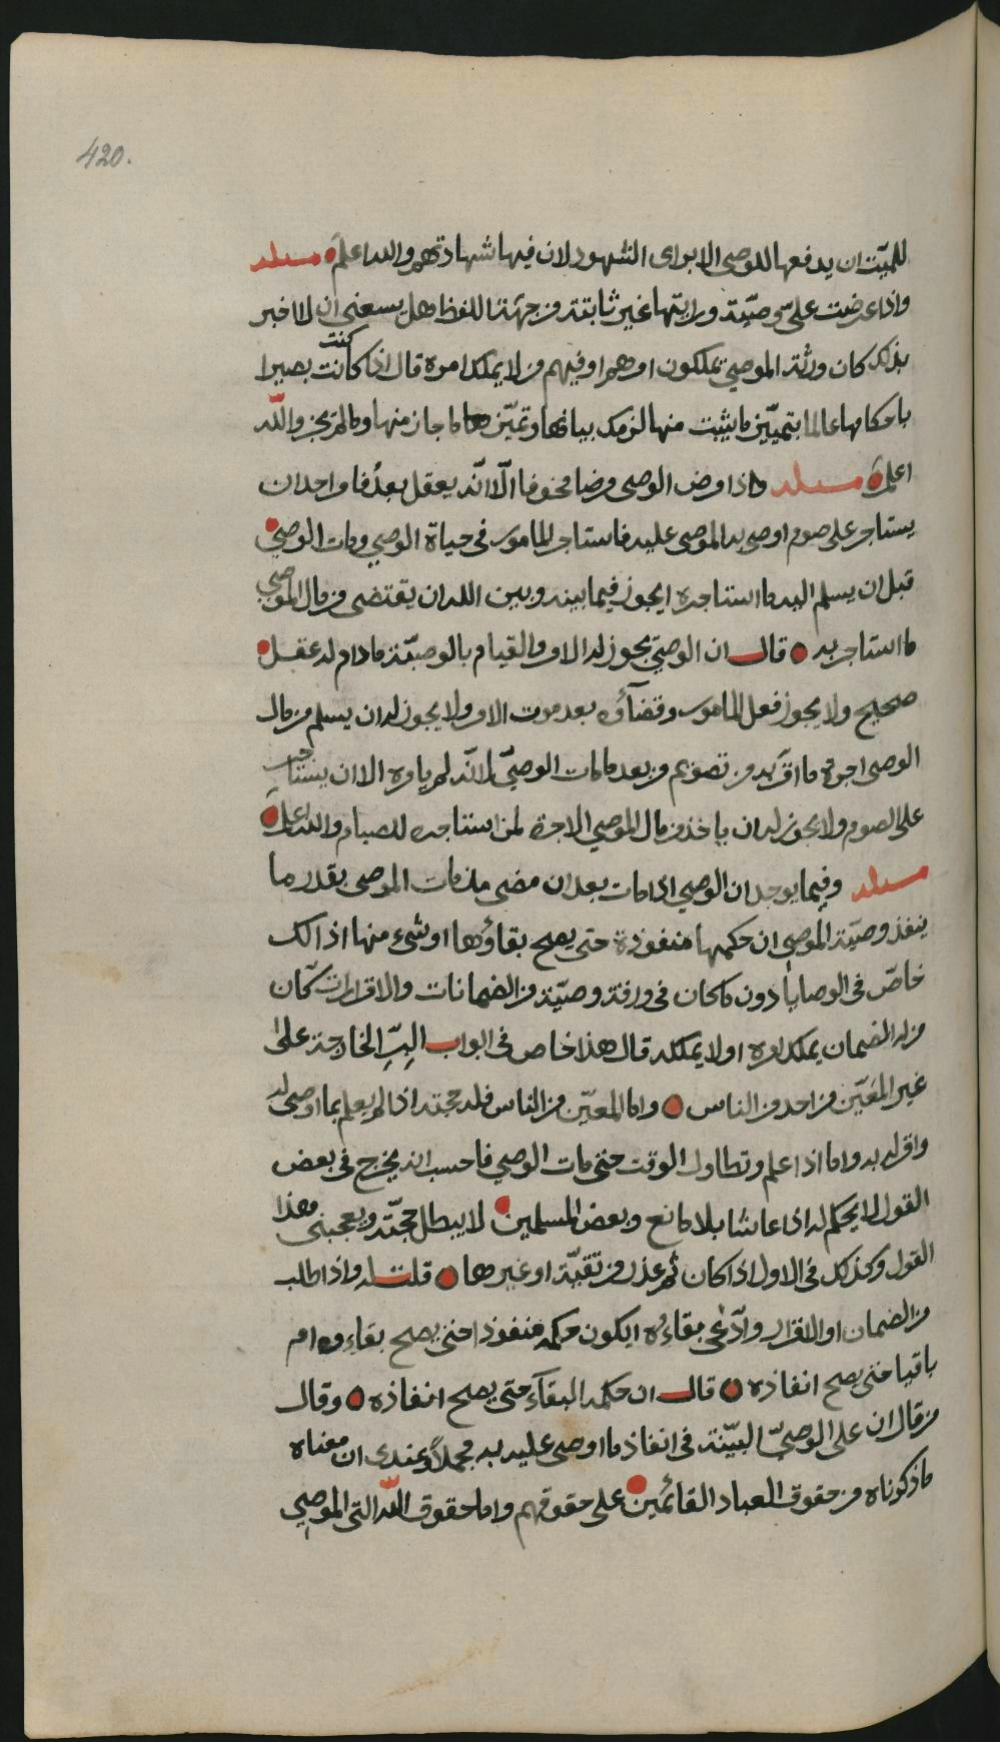 420.
للميّت ان يدفعها للوصي الا براى الشهود لان فيها شهادتهم والله اعلم مسئله
واذا عرضت عليّ وصيّة ورايتها غير ثابتة من جهة اللفظ هل يسعني ان لا اخبر
بذلك كان ورثة الموصي يملكون امرهم او فيهم من لا يملك امره قال اذا كنت كانت بصيرا
باحكامها عالما بتمييز ما يثبت منها لزمك بيانها وتميّز ما جاز منها وما لم يجز والله
اعلم مسئله واذا مرض الوصي مرضا مخوفا الّا انّه يعقل بعدُ فامر احدا ان
يستاجر على صوم اوصى به الموصى عليه فاستاجر المامور في حياة الوصي ومات الوصي
قبل ان يسلم اليه ما استاجره ايجوز فيما بينه وبين الله ان يقتضى من مال الموصي
ما استاجر به قال ان الوصيّ يجوز له الامر والقيام بالوصيّة ما دام له عقل
صحيح ولا يجوز فعل المامور وقضآؤه بعد موت الامر ولا يجوز له ان يسلم من مال
الوصى اجرة ما اقرّ به من تصويم من بعد ما مات الوصيّ لانّه لم يامره الا ان يستاجر
على الصوم ولا يجوز له ان ياخذ من مال الموصي الاجرة لمن استاجره للصيام والله اعلم
مسئله وفيما يوجد ان الوصي اذا مات بعد ان مضى مذ مات الموصى بقدر ما
ينفذ وصيّة الموصي ان حكمها منفوذة حتى يصح بقاؤها او شيء منها اذالك
خاصّ في الوصايا دون ما كان في ورقة وصيّة من الضمانات والاقرارات كان
من له الضمان يملك امره او لا يملكه قال هذا خاص في ابواب البِرِّ الخارجة على
غير المعيّن من احد من الناس واما المعيّن من الناس فله حجته اذا لم يعلم بما اوصي له
واقر له به واما اذا علم وتطاول الوقت حتى مات الوصي فاحسب انه يخرج في بعض
القول لا يحكم له اذا عاشا بلا مانع وبعض المسلمين لا يبطل حجّته ويعجبني هذا
القول وكذلك في الاول اذا كان ثم عذر من تقيّة او غيرها قلت له واذا طلب
من الضمان او الاقرار وادّعى بقاءه ايكون حكمه منفوذا حتى يصح بقاءه ام
باقيا حتى يصح انفاذه قال ان حكمه البقآء حتى يصح انفاذه وقال
من قال ان على الوصيّ البيّنة في انفاذ ما اوصى عليه به مجملاً وعندي ان معناه
ما ذكرناه من حقوق العباد القائمين على حقوقهم واما حقوق الله التى الموصي